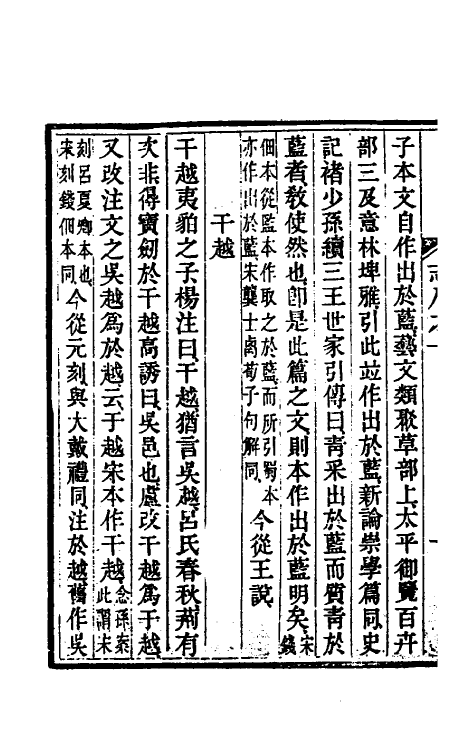 子本文自作出於藍藝文類聚草部上太平御覽百卉
部三及意林埤雅引此竝作出於藍新論崇學篇同史
記褚少孫續三王世家引傳曰靑采出於藍而質靑於
藍者敎使然也卽是此篇之文則本作出於藍明矣宋錢
佃本從監本作取之於藍而所引蜀本
亦作出於藍宋龔士卨荀子句解同今從王說
干越
干越夷貉之子楊注曰干越猶言吳越呂氏春秋荊有
次非得寶劒於干越高誘曰吳邑也盧改干越爲于越
又改注文之吳越爲於越云于越宋本作干越念孫案此謂宋
刻呂夏卿本也
宋刻錢佃本同今從元刻與大戴禮同注於越舊作吳